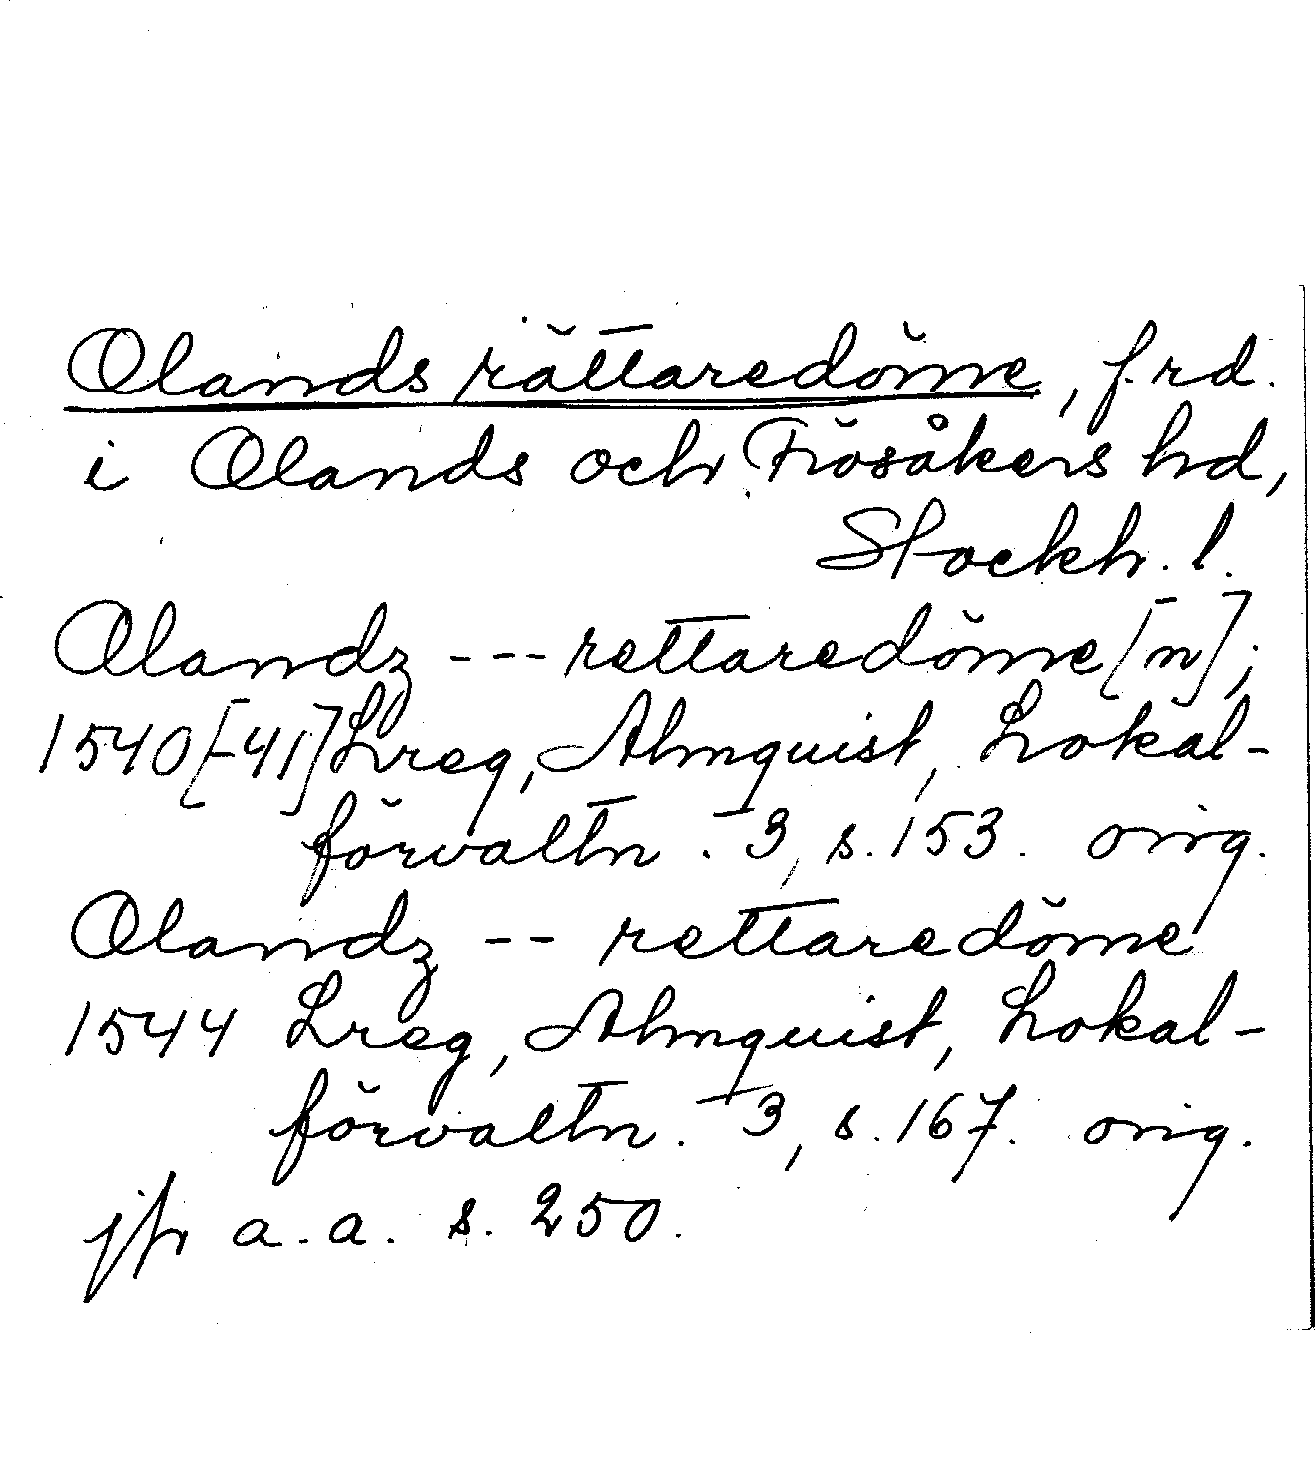 Olands rättaredöme, f. rd.
i Olands och Frösåkers hd,
Stockh. l.
Olandz --- rettaredöme[n];
1540[-41] Lreg, Almquist, Lokal-
förvaltn. 3, s. 153. orig.
Olandz -- rettaredöme
1544 Lreg, Almquist, Lokal-
förvaltn. 3, s. 167. orig.
jfr a.a. s. 250.